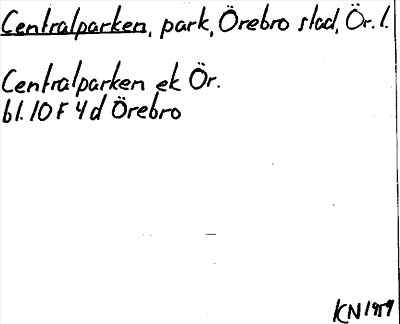 Centralparken, park, Örebro stad, Ör. l.
Centralparken ek Ör.
bl. 10 F 4 d Örebro
KN 1959